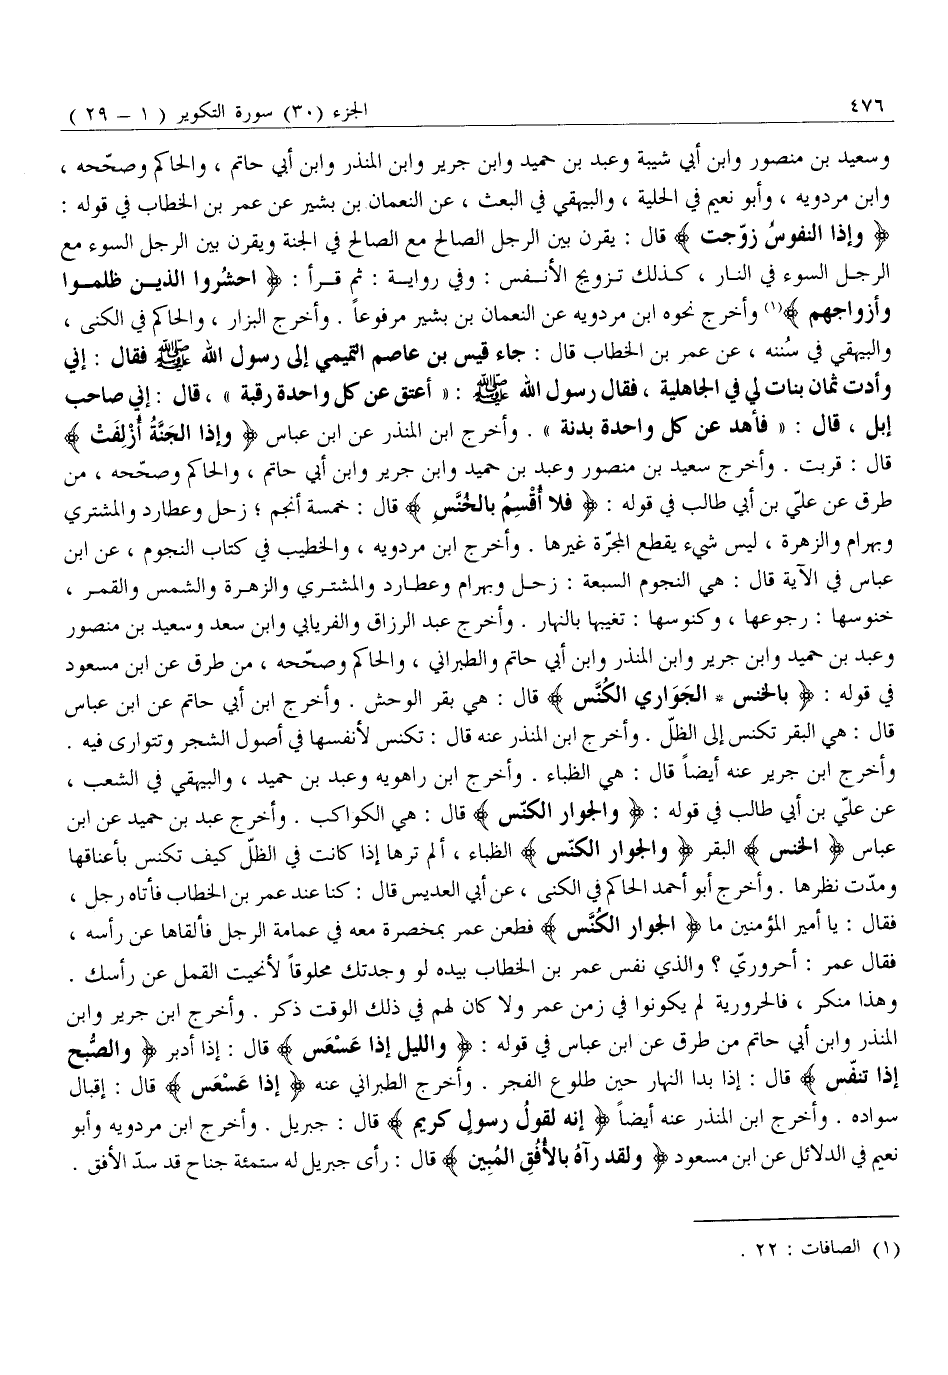 ٤٧٦ الجزء (٣٠) سورة التكوير ( ١ – ٢٩ )
وسعيد بن منصور وابن أبي شيبة وعبد بن حميد وابن جرير وابن المنذر وابن أبي حاتم ، والحاكم وصحّحه ،
وابن مردويه ، وأبو نعيم في الحلية ، والبيهقي في البعث ، عن النعمان بن بشير عن عمر بن الخطاب في قوله :
﴿ وإذا النفوسُ زوّجت ﴾ قال : يقرن بين الرجل الصالح مع الصالح في الجنة ويقرن بين الرجل السوء مع
الرجل السوء في النار ، كذلك تزويج الأنفس : وفي رواية : ثم قرأ : ﴿ احشروا الذين ظلموا
وأزواجهم ﴾(١) وأخرج نحوه ابن مردويه عن النعمان بن بشير مرفوعاً . وأخرج البزار ، والحاكم في الكنى ،
والبيهقي في سُننه ، عن عمر بن الخطاب قال : جاء قيس بن عاصم التميمي إلى رسول الله ﷺ فقال : إني
وأدت ثمان بنات لي في الجاهلية ، فقال رسول الله ﷺ : « أعتق عن كل واحدة رقبة » ، قال : إني صاحب
إبل ، قال : « فأهد عن كل واحدة بدنة » . وأخرج ابن المنذر عن ابن عباس ﴿ وإذا الجَنَّةُ أُزْلِفَتْ ﴾
قال : قربت . وأخرج سعيد بن منصور وعبد بن حميد وابن جرير وابن أبي حاتم ، والحاكم وصحّحه ، من
طرق عن عليّ بن أبي طالب في قوله : ﴿ فلا أُقْسِمُ بالخُنَّسِ ﴾ قال : خمسة أنجم ؛ زحل وعطارد والمشتري
وبهرام والزهرة ، ليس شيء يقطع المجرّة غيرها . وأخرج ابن مردويه ، والخطيب في كتاب النجوم ، عن ابن
عباس في الآية قال : هي النجوم السبعة : زحل وبهرام وعطارد والمشتري والزهرة والشمس والقمر ،
خنوسها : رجوعها ، وكنوسها : تغيبها بالنهار . وأخرج عبد الرزاق والفريابي وابن سعد وسعيد بن منصور
وعبد بن حميد وابن جرير وابن المنذر وابن أبي حاتم والطبراني ، والحاكم وصحّحه ، من طرق عن ابن مسعود
في قوله : ﴿ بالخنس * الجَوَاري الكُنَّس ﴾ قال : هي بقر الوحش . وأخرج ابن أبي حاتم عن ابن عباس
قال : هي البقر تكنس إلى الظلّ . وأخرج ابن المنذر عنه قال : تكنس لأنفسها في أصول الشجر وتتوارى فيه .
وأخرج ابن جرير عنه أيضاً قال : هي الظباء . وأخرج ابن راهويه وعبد بن حميد ، والبيهقي في الشعب ،
عن عليّ بن أبي طالب في قوله : ﴿ والجوار الكنّس ﴾ قال : هي الكواكب . وأخرج عبد بن حميد عن ابن
عباس ﴿ الخنس ﴾ البقر ﴿ والجوار الكنّس ﴾ الظباء ، ألم ترها إذا كانت في الظلّ كيف تكنس بأعناقها
ومدّت نظرها . وأخرج أبو أحمد الحاكم في الكنى ، عن أبي العديس قال : كنا عند عمر بن الخطاب فأتاه رجل ،
فقال : يا أمير المؤمنين ما ﴿ الجوار الكُنَّس ﴾ فطعن عمر بمخصرة معه في عمامة الرجل فألقاها عن رأسه ،
فقال عمر : أحروريّ ؟ والذي نفس عمر بن الخطاب بيده لو وجدتك محلوقاً لأنحيت القمل عن رأسك .
وهذا منكر ، فالحرورية لم يكونوا في زمن عمر ولا كان لهم في ذلك الوقت ذكر . وأخرج ابن جرير وابن
المنذر وابن أبي حاتم من طرق عن ابن عباس في قوله : ﴿ والليل إذا عَسْعَس ﴾ قال : إذا أدبر ﴿ والصُّبح
إذا تنفّس ﴾ قال : إذا بدا النهار حين طلوع الفجر . وأخرج الطبراني عنه ﴿ إذا عَسْعَس ﴾ قال : إقبال
سواده . وأخرج ابن المنذر عنه أيضاً ﴿ إنه لقولُ رسولٍ كريم ﴾ قال : جبريل . وأخرج ابن مردويه وأبو
نعيم في الدلائل عن ابن مسعود ﴿ ولقد رآهُ بالأُفُقِ المُبِين ﴾ قال : رأى جبريل له ستمئة جناح قد سدّ الأفق .
(١) الصافات : ٢٢ .